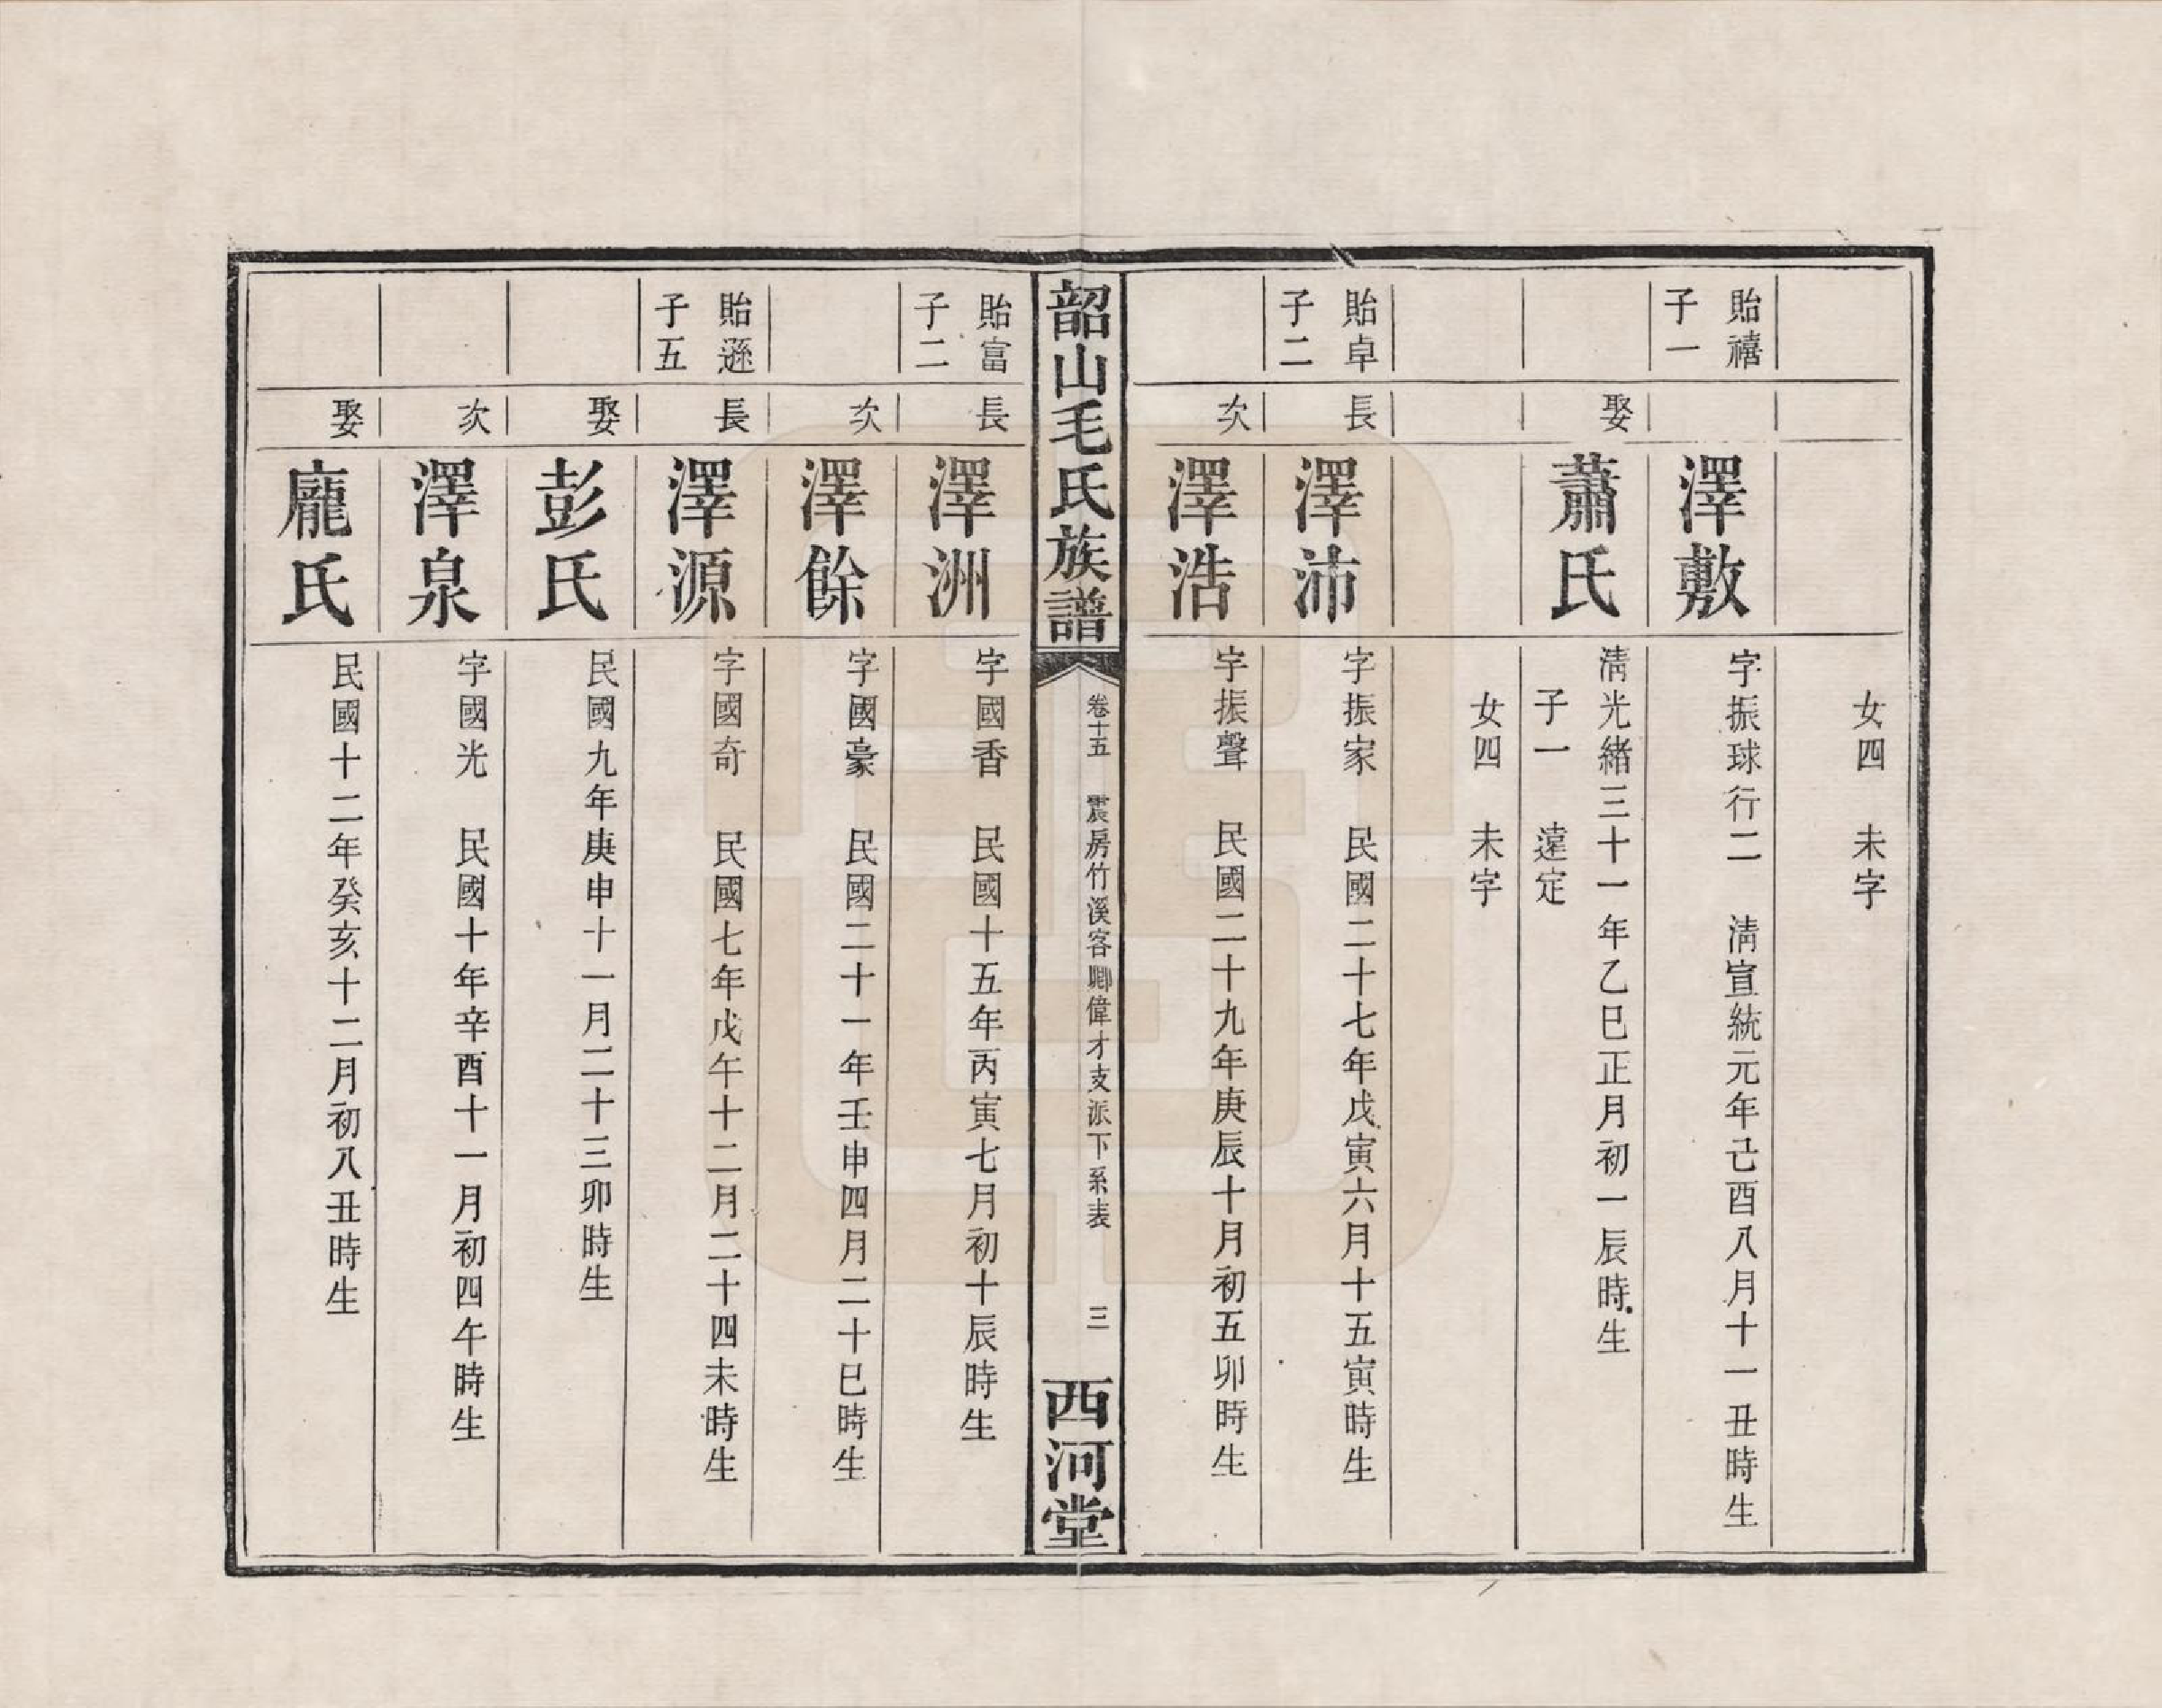 女四　未字
貽禧
子一
澤敷
字振球行二　清宣統元年己酉八月十一丑時生
娶
蕭氏
清光緒三十一年乙巳正月初一辰時生
子一　遠定
女四　未字
貽卓
子二
長
澤沛
字振家　民國二十七年戊寅六月十五寅時生
次
澤浩
字振聲　民國二十九年庚辰十月初五卯時生
韶山毛氏族譜
卷十五　震房竹溪客卿偉才支派下系表
三
西河堂
貽富
子二
長
澤洲
字國香　民國十五年丙寅七月初十辰時生
次
澤餘
字國豪　民國二十一年壬申四月二十巳時生
貽遜
子五
長
澤源
字國奇　民國七年戊午十二月二十四未時生
娶
彭氏
民國九年庚申十一月二十三卯時生
次
澤泉
字國光　民國十年辛酉十一月初四午時生
娶
龐氏
民國十二年癸亥十二月初八丑時生